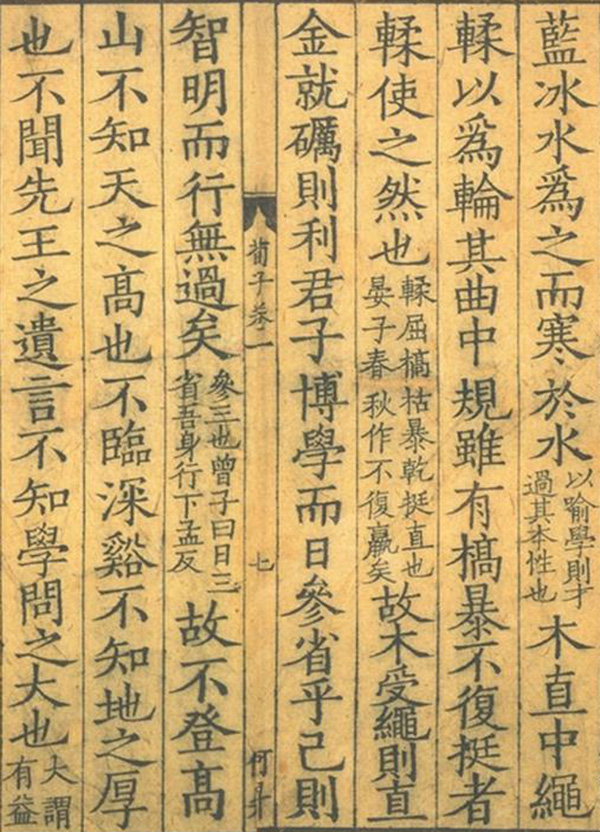 藍冰水爲之而寒於水以喻學則才過其本性也木直中繩
輮以爲輪其曲中規雖有槁暴不復挺者
輮使之然也輮屈槁枯暴乾挺直也晏子春秋作不復贏矣故木受繩則直
金就礪則利君子博學而日參省乎己則
荀子卷一 七 何昇
智明而行無過矣參三也曾子曰日三省吾身行下孟反故不登髙
山不知天之髙也不臨深谿不知地之厚
也不聞先王之遺言不知學問之大也大謂有益